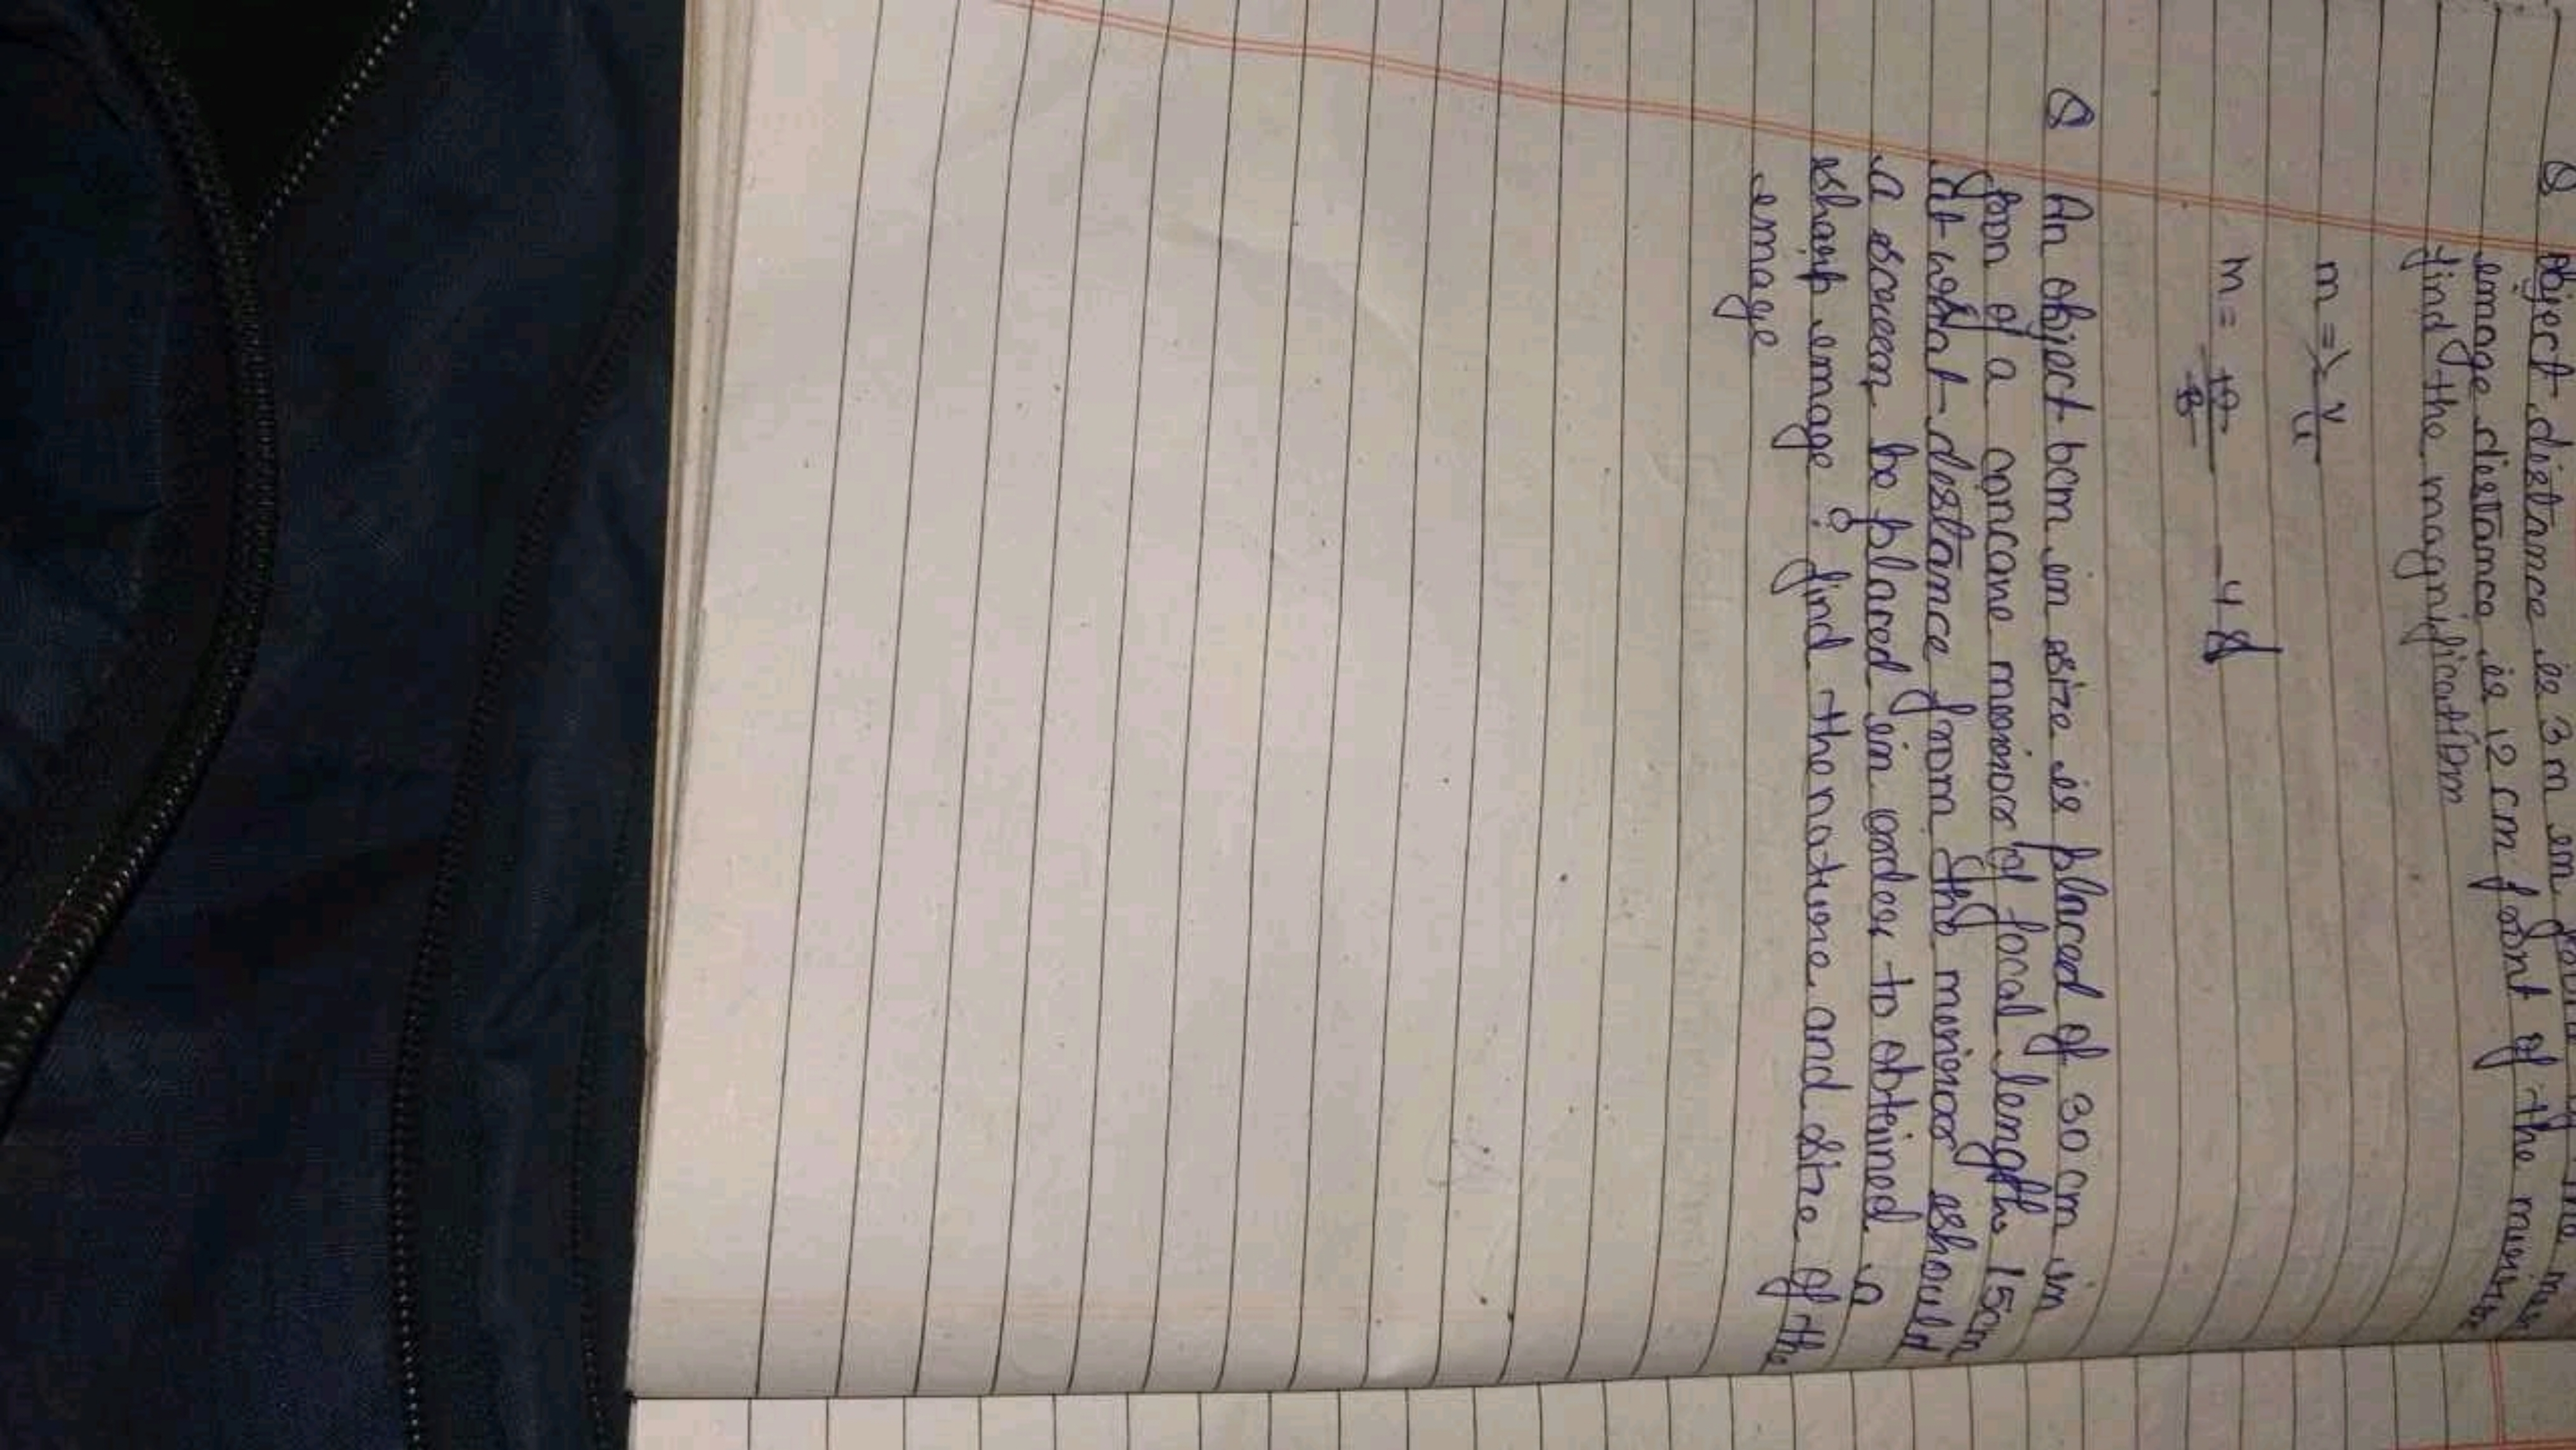 Q object distance is 3 m in
image distance is 12 cm font of the mirror
find the magnification
m = - v/u
m = - 12/-3 - 4
Q An object 6cm in size is placed of 30 cm in
fron of a concane mirror of focal lengths 15cm
At what distance from the mirror should
a screen be placed in order to obteined a
sharp image ? find the nature and size of the
image